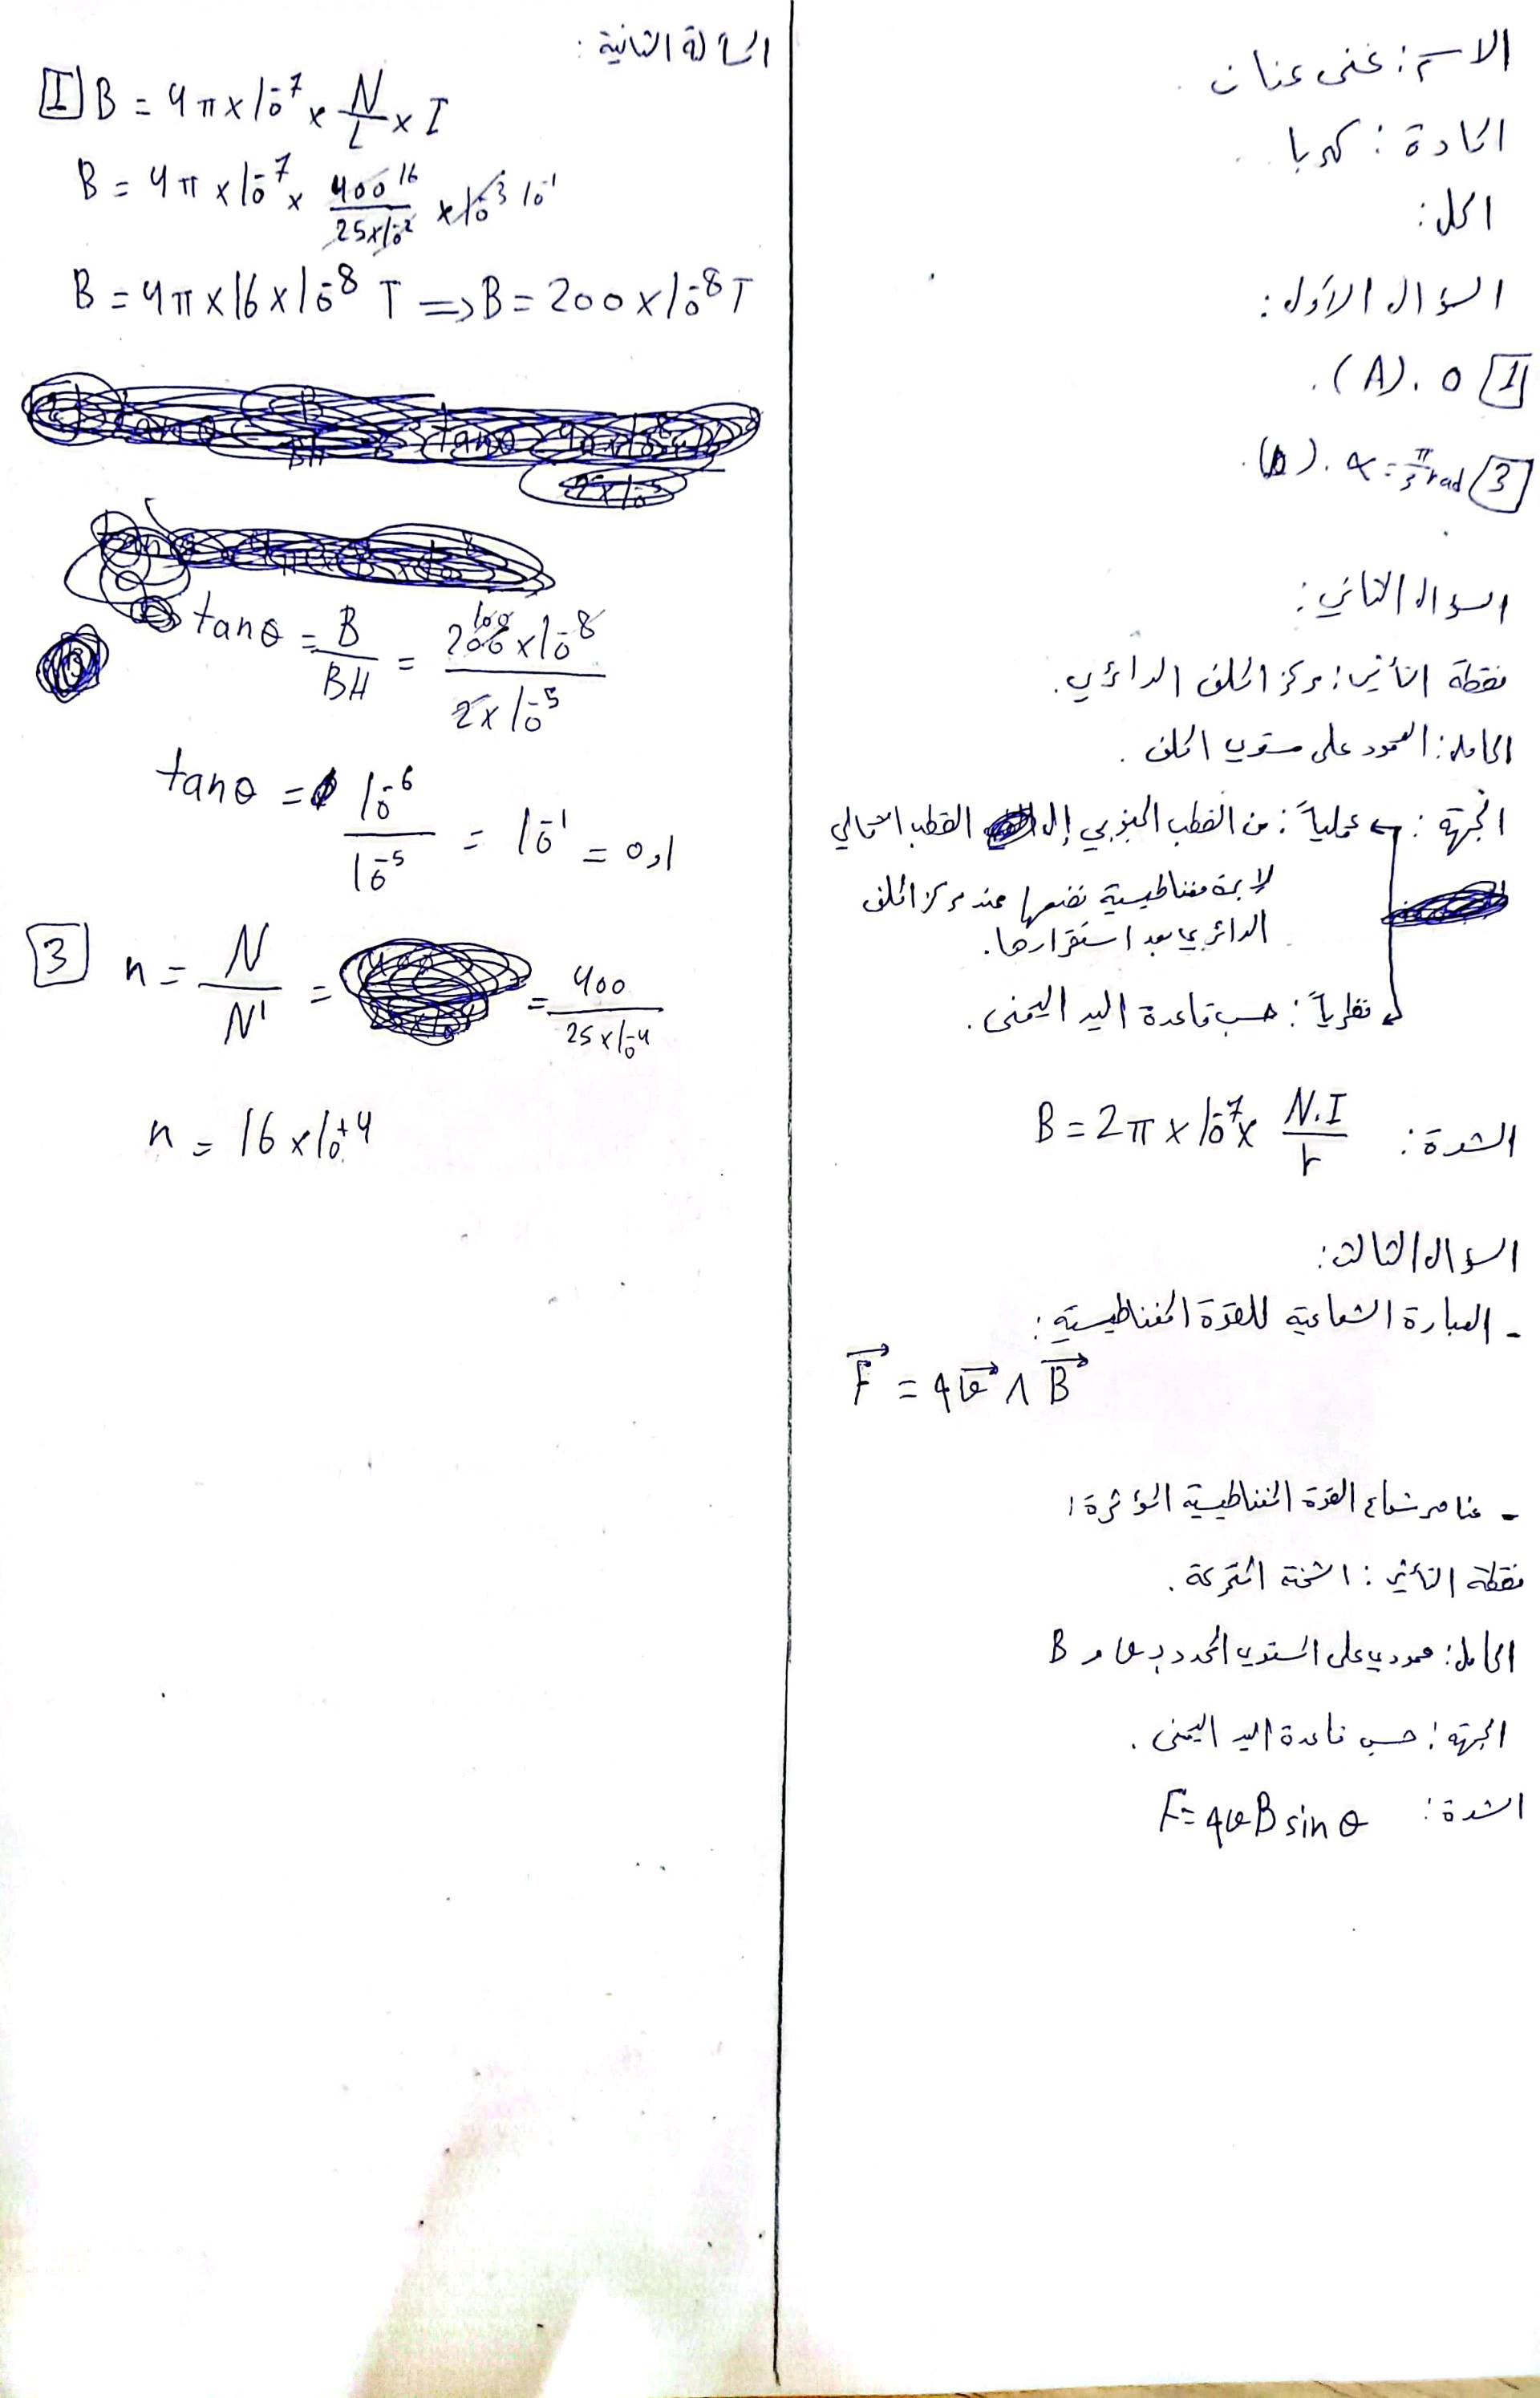 الاسم: غنى عنان
المادة: كهربا
الحل:
السؤال الأول:
1 0 .(A).
3 α = π/3 rad .(D).
السؤال الثاني:
نقطة التأثير: مركز الملف الدائري.
الحامل: العمود على مستوي الملف.
الجهة: عملياً: من القطب الجنوبي إلى القطب الشمالي
لإبرة مغناطيسية نضعها عند مركز الملف
الدائري بعد استقرارها.
نظرياً: حسب قاعدة اليد اليمنى.
الشدة: B = 2π × 10⁻⁷ × N.I / r
السؤال الثالث:
- العبارة الشعاعية للقوة المغناطيسية:
F⃗ = q v⃗ ∧ B⃗
- عناصر شعاع القوة المغناطيسية المؤثرة:
نقطة التأثير: الشحنة المتحركة.
الحامل: عمودي على المستوي المحدد بـ v و B
الجهة: حسب قاعدة اليد اليمنى.
الشدة: F = q v B sin θ
المسألة الثانية:
1 B = 4π × 10⁻⁷ × N/L × I
B = 4π × 10⁻⁷ × 400 16 / 25×10⁻² × 10⁻³ 10⁻¹
B = 4π × 16 × 10⁻⁸ T ⇒ B = 200 × 10⁻⁸ T
tanθ = B / BH = 200 100 × 10⁻⁸ / 2 × 10⁻⁵
tanθ = 10⁻⁶ / 10⁻⁵ = 10⁻¹ = 0,1
3 n = N / N' = = 400 / 25×10⁻⁴
n = 16 × 10⁺⁴